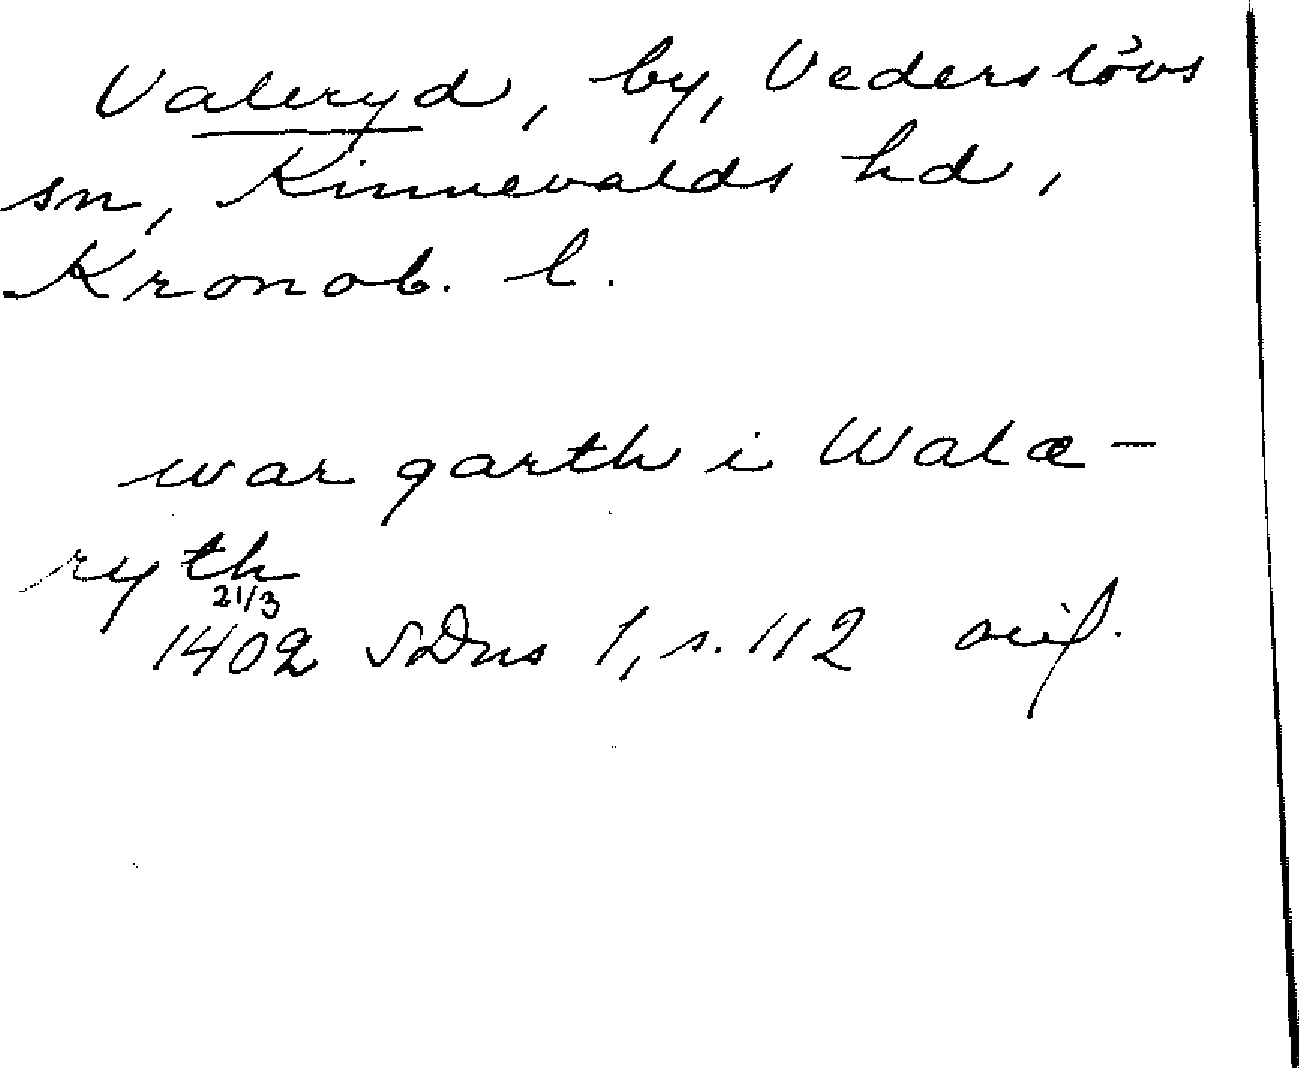 Valeryd, by, Vederslövs
sn, Kinnevalds hd,
Kronob. l.
war garth i Walæ-
ryth
21/3
1402 SDns 1, s. 112